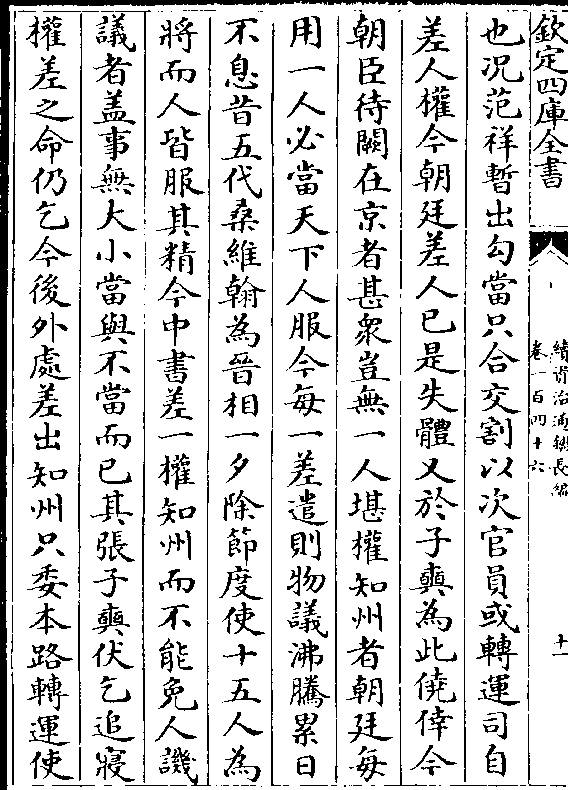 欽定四庫全書
續資治通鑑長編
卷一百四十六
十一
也况范祥暫出勾當只合交割以次官員或轉運司自
差人權今朝廷差人已是失體又於子奭為此僥倖今
朝臣待闕在京者甚衆豈無一人堪權知州者朝廷每
用一人必當天下人服今每一差遣則物議沸騰累日
不息昔五代桑維翰為晉相一夕除節度使十五人為
將而人皆服其精今中書差一權知州而不能免人譏
議者盖事無大小當與不當而已其張子奭伏乞追寢
權差之命仍乞今後外處差出知州只委本路轉運使